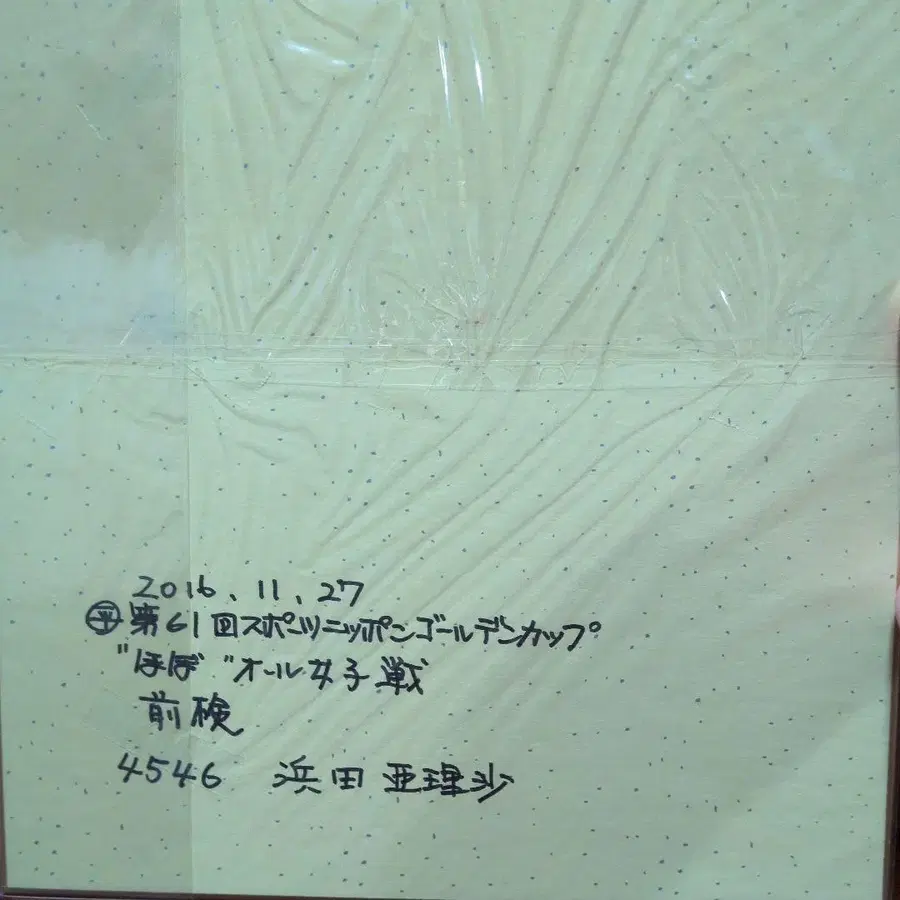 2016.11.27
㊥第61回スポーツニッポンゴールデンカップ
"ほぼ"オール女子戦
前検
4546 浜田亜理沙